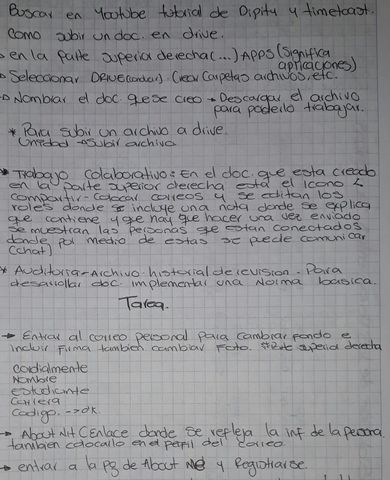 Buscar en Youtube tutorial de Dipity y timetoast.
Como subir un doc. en drive.
en la parte superior derecha (...) APPS (Significa
aplicaciones)
Seleccionar DRIVE (Crear carpetas archivos, etc.
Nombrar el doc. que se creo → Descargar el archivo
para poderlo trabajar.
* Para subir un archivo a drive.
Unidad → Subir archivo
Trabajo Colaborativo: En el doc. que esta creado
en la parte superior derecha esta el icono
compartir-colocar correos y se editan los
roles donde se incluye una nota donde se explica
que contiene y que hay que hacer una vez enviado
se muestran las personas que estan conectados
donde por medio de estas se puede comunicar
(chat)
* Auditoria-Archivo-historial de revision. Para
desarrollar doc. implementar una Norma basica.
Tarea.
→ Entrar al correo personal para cambiar fondo e
incluir Firma tambien cambiar Foto. superior derecha
cordialmente
Nombre
estudiante
Carrera
Codigo. → ok
→ About (Enlace donde se refleja la inf de la persona.
tambien colocarlo en el perfil del correo.
→ entrar a la pg de About Me y Registrarse.